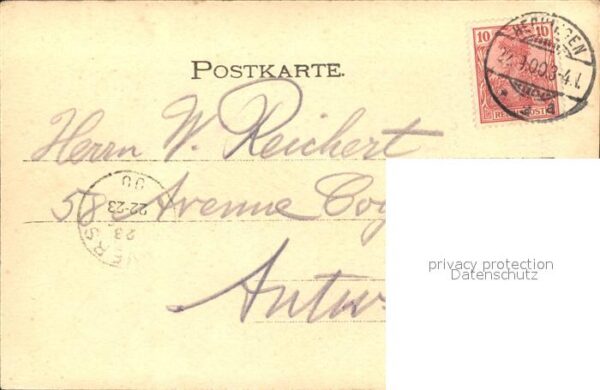 POSTKARTE.
10 10
REICHSPOST
22.1.00.3-4.N.
Herrn W. Reichert
58 Avenue Cog
Antw
00
22-23
23
privacy protection
Datenschutz